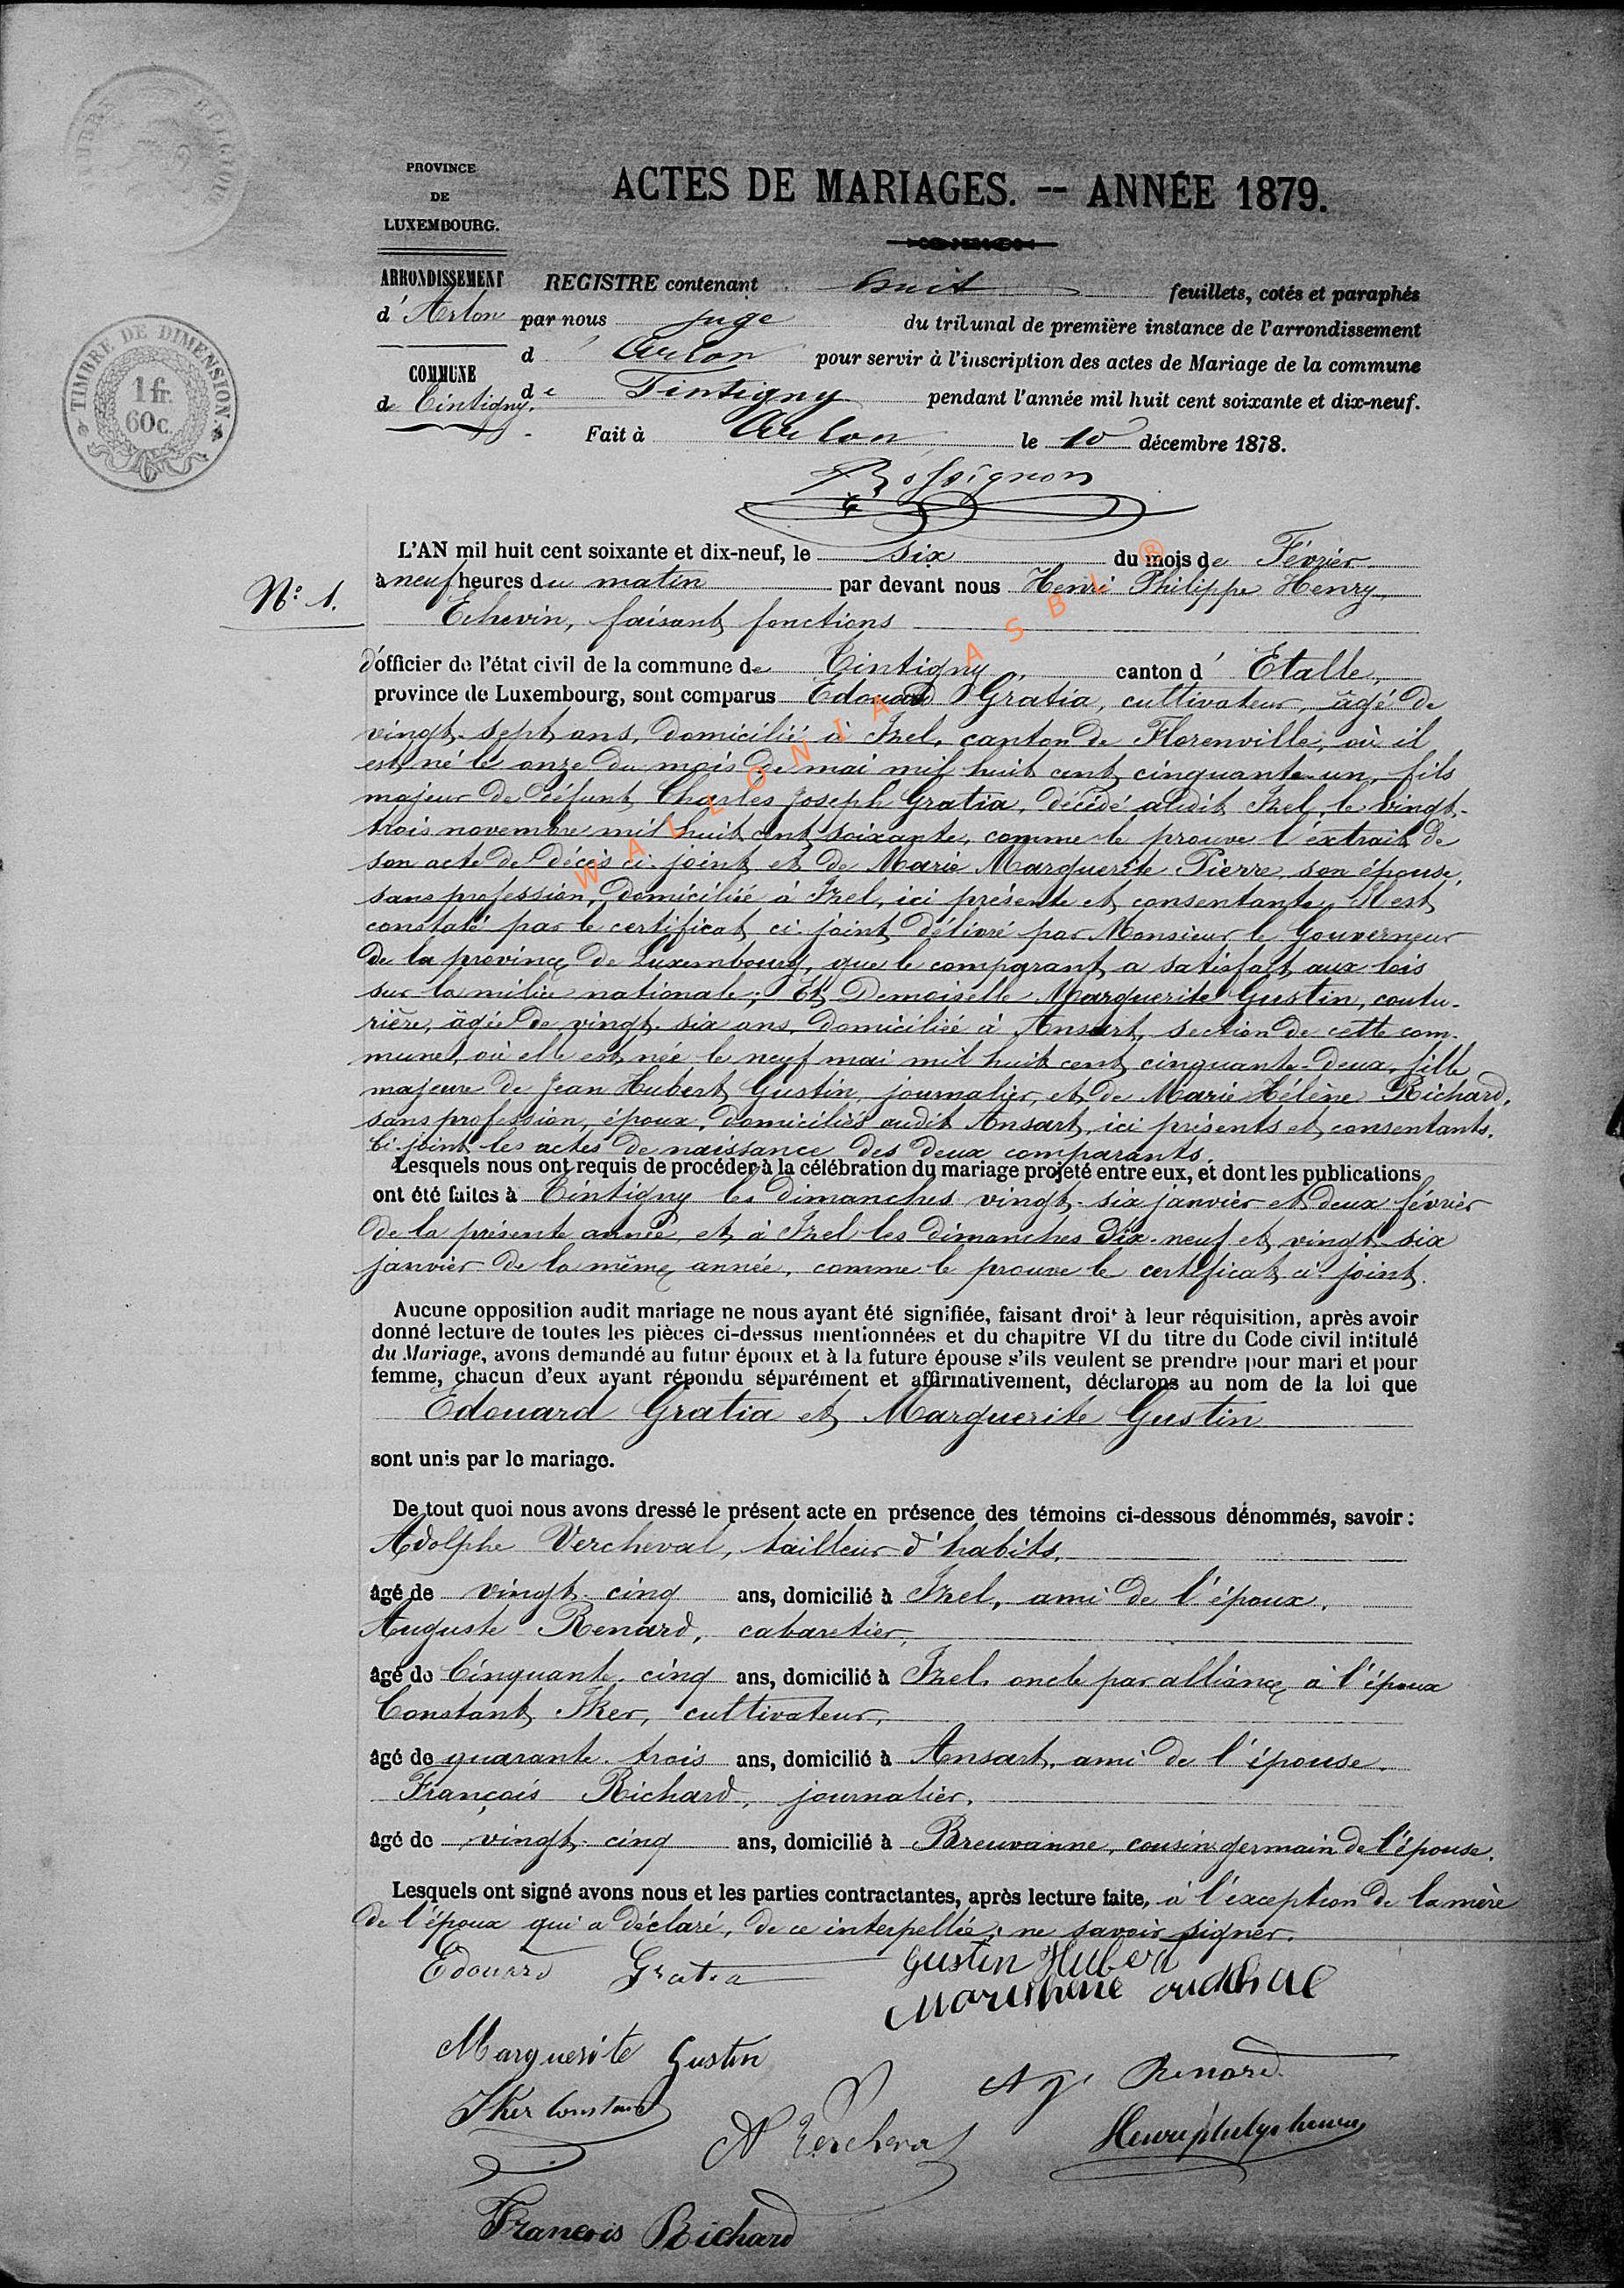 TIMBRE DE DIMENSION
1 fr.
60 c.
PROVINCE
DE
LUXEMBOURG.
ARRONDISSEMENT
d'Arlon
COMMUNE
de Tintigny.
ACTES DE MARIAGES. -- ANNÉE 1879.
REGISTRE contenant huit feuillets, cotés et paraphés
par nous juge du tribunal de première instance de l'arrondissement
d'Arlon pour servir à l'inscription des actes de Mariage de la commune
de Tintigny pendant l'année mil huit cent soixante et dix-neuf.
Fait à Arlon le 10 décembre 1878.
Rossignon
N° 1.
L'AN mil huit cent soixante et dix-neuf, le six du mois de Février
à neuf heures du matin par devant nous Henri Philippe Henry,
Echevin, faisant fonctions
d'officier de l'état civil de la commune de Tintigny, canton d'Etalle,
province de Luxembourg, sont comparus Edouard Gratia, cultivateur, âgé de
vingt-sept ans, domicilié à Izel, canton de Florenville, où il
est né le onze du mois de mai mil huit cent cinquante-un, fils
majeur de défunt Charles Joseph Gratia, décédé audit Izel, le vingt-
trois novembre mil huit cent soixante, comme le prouve l'extrait de
son acte de décès ci-joint et de Marie Marguerite Pierre, son épouse,
sans profession, domiciliée à Izel, ici présente et consentante; Il est
constaté par le certificat ci-joint délivré par Monsieur le Gouverneur
de la province de Luxembourg, que le comparant a satisfait aux lois
sur la milice nationale; Et Demoiselle Marguerite Gustin, coutu-
rière, âgée de vingt-six ans, domiciliée à Ansart, section de cette com-
mune, où elle est née le neuf mai mil huit cent cinquante-deux, fille
majeure de Jean Hubert Gustin, journalier, et de Marie Hélène Richard,
sans profession, époux, domiciliés audit Ansart, ici présents et consentants.
Ci-joint les actes de naissance des deux comparants.
Lesquels nous ont requis de procéder à la célébration du mariage projeté entre eux, et dont les publications
ont été faites à Tintigny les dimanches vingt-six janvier et deux février
de la présente année et à Izel les dimanches dix-neuf et vingt-six
janvier de la même année, comme le prouve le certificat ci-joint.
Aucune opposition audit mariage ne nous ayant été signifiée, faisant droit à leur réquisition, après avoir
donné lecture de toutes les pièces ci-dessus mentionnées et du chapitre VI du titre du Code civil intitulé
du Mariage, avons demandé au futur époux et à la future épouse s'ils veulent se prendre pour mari et pour
femme, chacun d'eux ayant répondu séparément et affirmativement, déclarons au nom de la loi que
Edouard Gratia et Marguerite Gustin
sont unis par le mariage.
De tout quoi nous avons dressé le présent acte en présence des témoins ci-dessous dénommés, savoir :
Adolphe Vercheval, tailleur d'habits,
âgé de vingt-cinq ans, domicilié à Izel, ami de l'époux.
Auguste Renard, cabaretier,
âgé de Cinquante-cinq ans, domicilié à Izel, oncle par alliance à l'époux
Constant Iker, cultivateur,
âgé de quarante-trois ans, domicilié à Ansart, ami de l'épouse.
François Richard, journalier,
âgé de vingt-cinq ans, domicilié à Breuvanne, cousin germain de l'épouse.
Lesquels ont signé avons nous et les parties contractantes, après lecture faite, à l'exception de la mère
de l'époux qui a déclaré, de ce interpellée, ne savoir signer.
Edouard Gratia
Gustin Hubert
Marguerite Gustin
Ag. Renard
Iker Constant
A Vercheval
Henri philipe henry
Francois Richard
WALLONIA ASBL ®